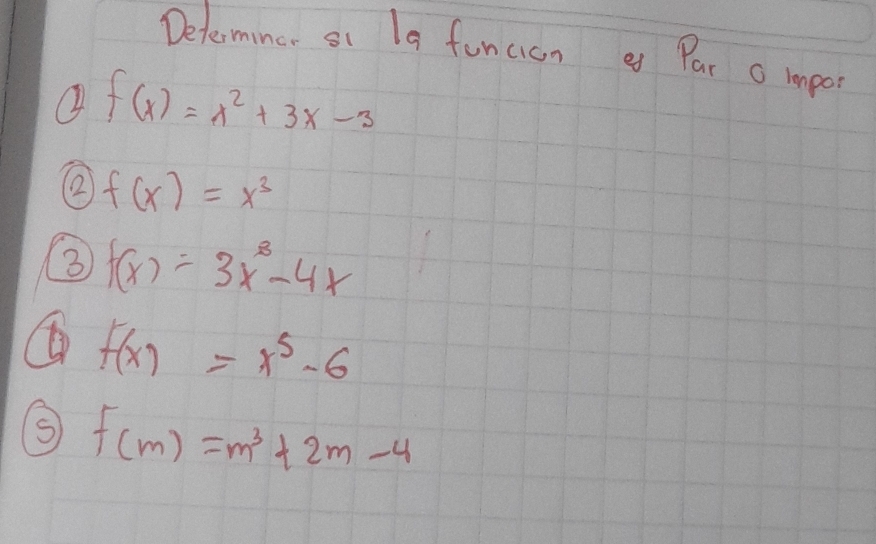 Determinar si la función es Par o impar
① f(x) = x² + 3x - 3
② f(x) = x³
③ f(x) = 3x³ - 4x
④ f(x) = x⁵ - 6
⑤ f(m) = m³ + 2m - 4